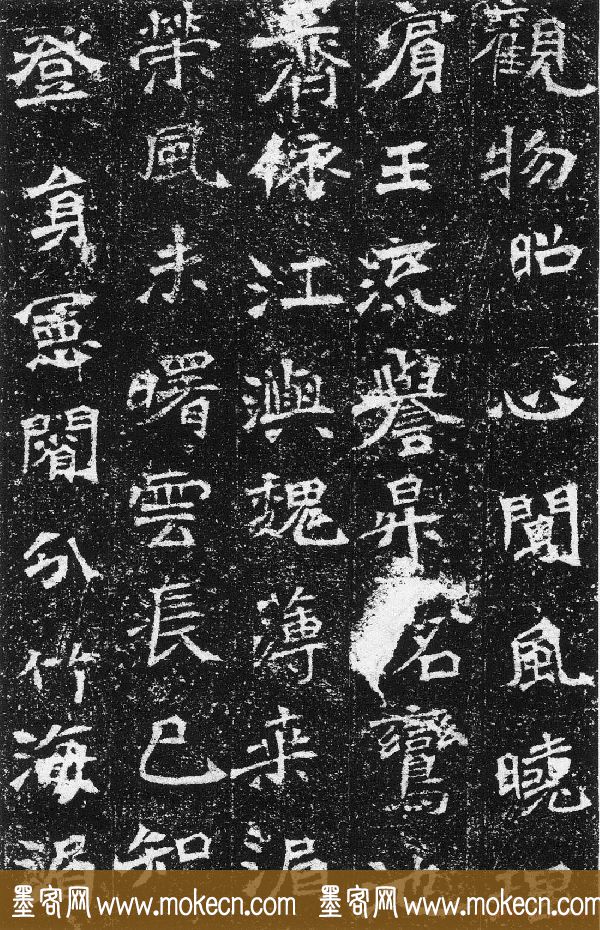 觀物昭心聞風曉理
賓王流譽昇名鸞
齊詠江㠘魏薄來湄
榮風未曙雲長已知
登身憲閣分竹海湄
墨客网 www.mokecn.com 墨客网 www.mokecn.com